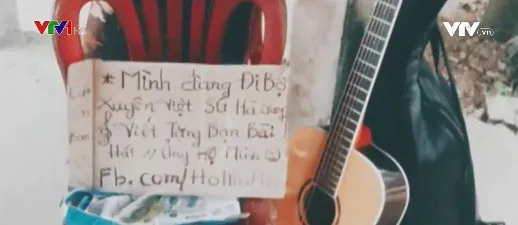 VTV1
VTV.vn
* Mình đang Đi Bộ
Xuyên Việt SG Hà Giang
Viết Tặng Bạn Bài
Hát // Ủng Hộ Mình
Fb.com/